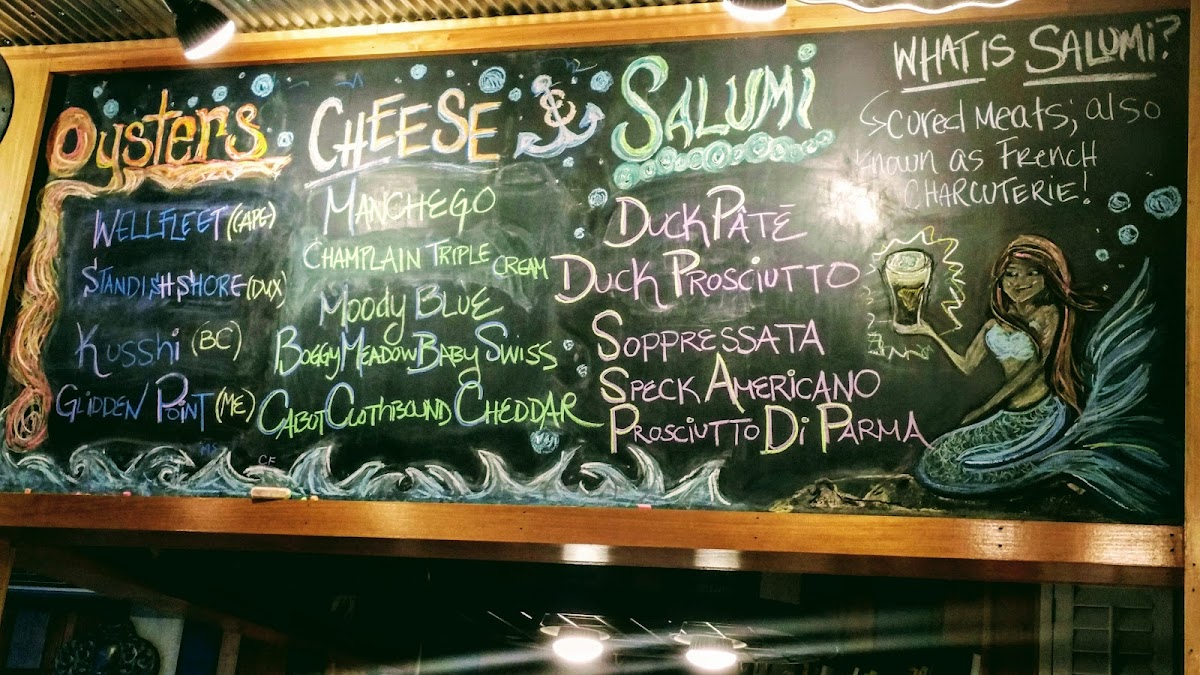 Oysters
WELLFLEET (CAPE)
STANDISH SHORE (DUX)
Kusshi (BC)
GLIDDEN POINT (ME)
MS
CHEESE
MANCHEGO
CHAMPLAIN TRIPLE CREAM
Moody BLUE
BOGGY MEADOW BABY SWISS
CABOT CLOTHBOUND CHEDDAR
CF
&
SALUMi
DUCK PÂTÉ
DUCK PROSCIUTTO
SOPPRESSATA
SPECK AMERICANO
PROSCIUTTO Di PARMA
WHAT IS SALUMi?
CURED MEATS; also
KNOWN as FRENCH
CHARCUTERIE!